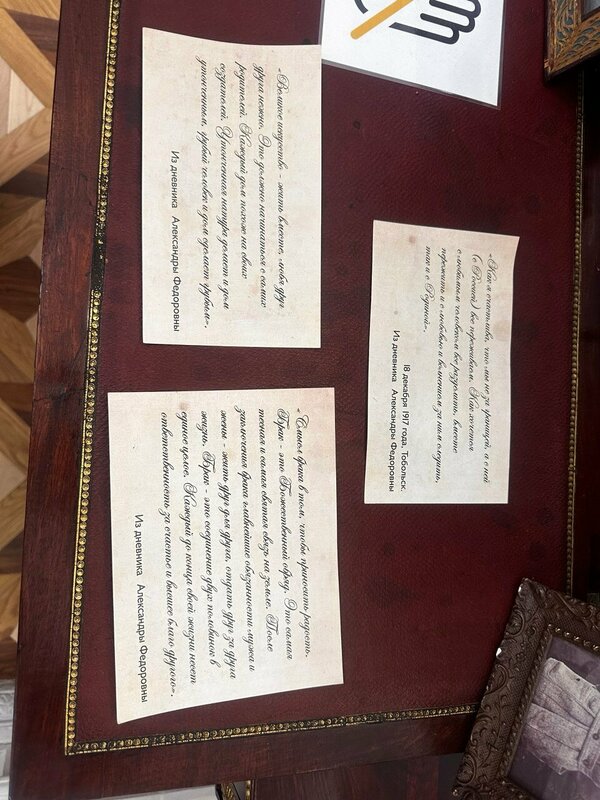 «Великое искусство - жить вместе, любя друг
друга нежно. Это должно начинаться с самих
родителей. Каждый дом похож на своих
создателей. Утонченная натура делает и дом
утонченным, грубый человек и дом сделает грубым».
Из дневника Александры Федоровны
«Как я счастлива, что мы не за границей, а с ней
(с Россией) все переживаем. Как хочется
с любимым человеком все разделить, вместе
пережить и с любовью и волнением за ним следить,
так и с Родиной».
18 декабря 1917 года, Тобольск.
Из дневника Александры Федоровны
«Смысл брака в том, чтобы приносить радость.
Брак - это Божественный обряд. Это самая
тесная и самая святая связь на земле. После
заключения брака главнейшие обязанности мужа и
жены - жить друг для друга, отдать друг за друга
жизнь. Брак - это соединение двух половинок в
единое целое. Каждый до конца своей жизни несет
ответственность за счастье и высшее благо другого».
Из дневника Александры Федоровны